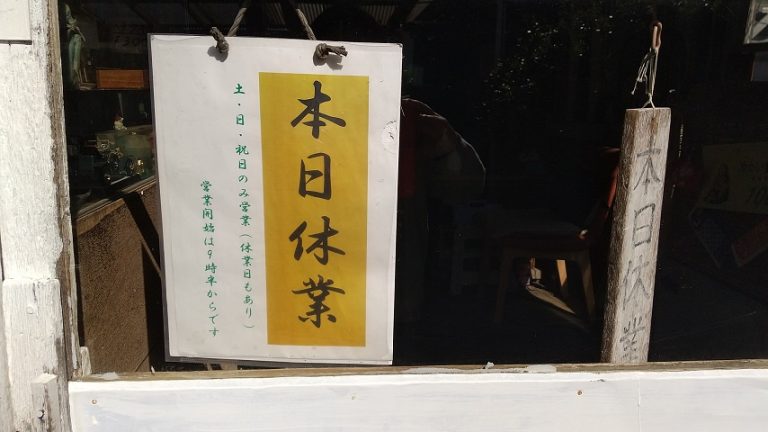 本日休業
土・日・祝日のみ営業（休業日もあり）
営業開始は9時半からです
本日休業